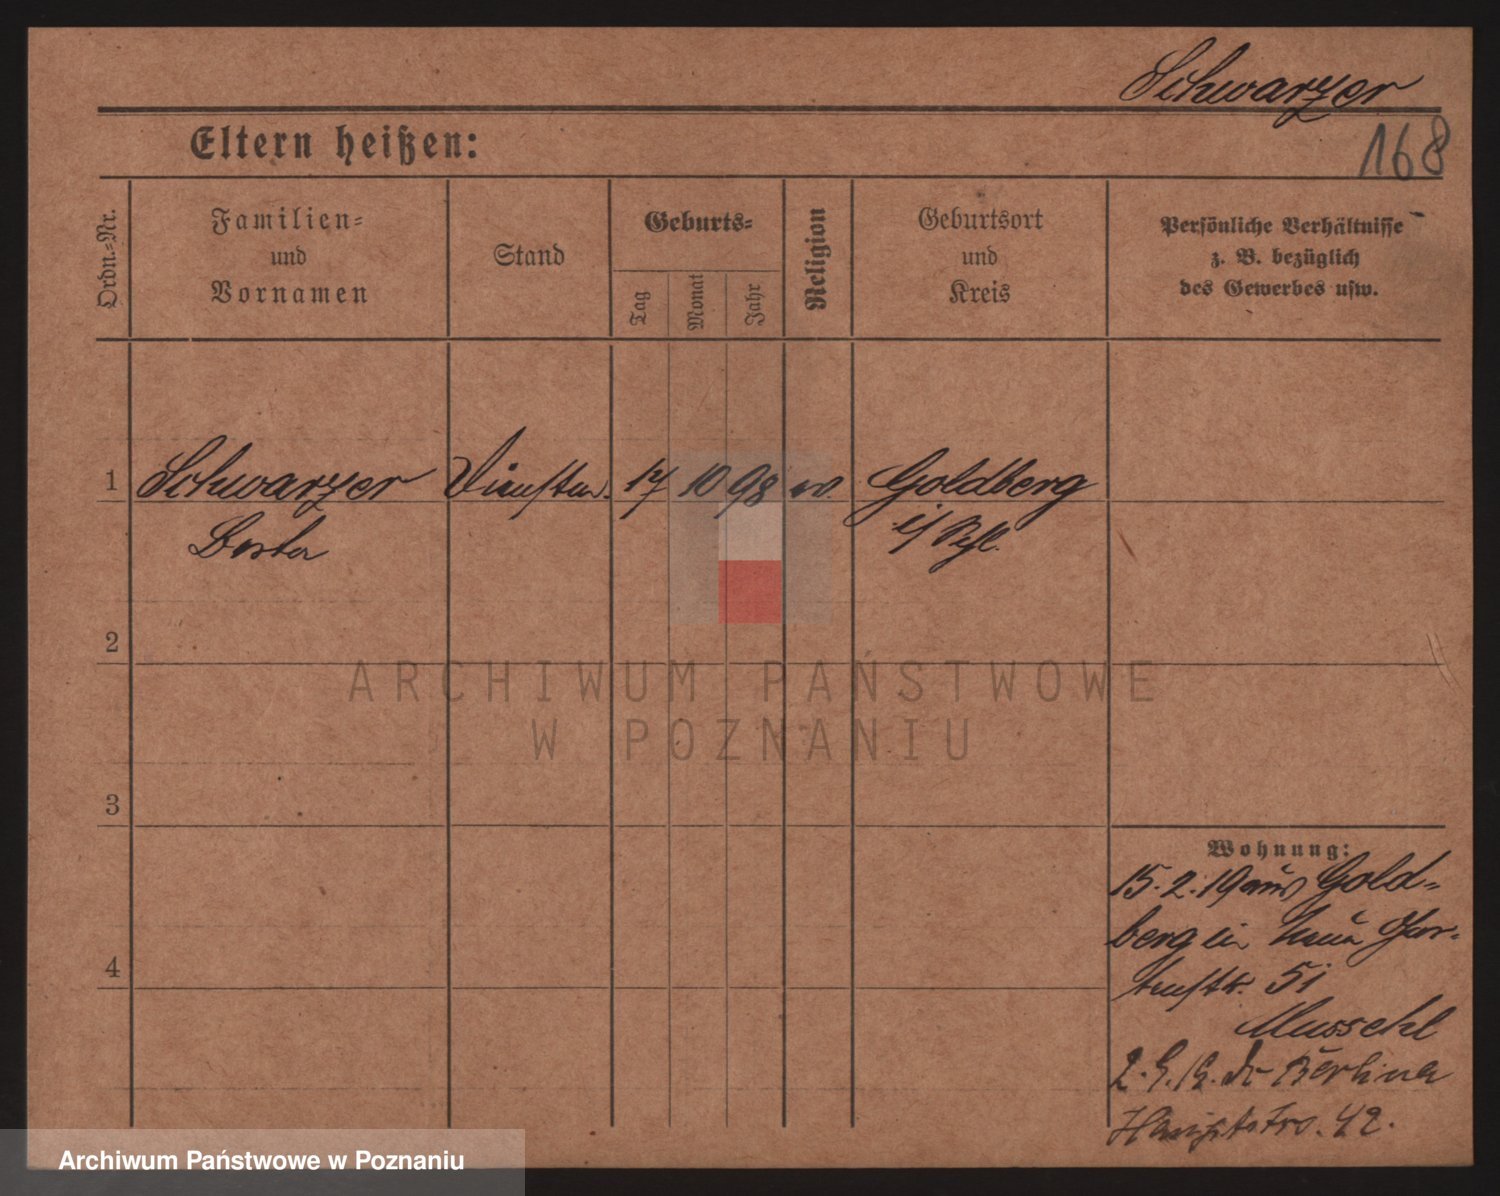 Schwarzer
168
Eltern heißen:
Ordn.-Nr.
Familien-
und
Vornamen
Stand
Geburts-
Tag
Monat
Jahr
Religion
Geburtsort
und
Kreis
Persönliche Verhältnisse
z. B. bezüglich
des Gewerbes usw.
1
Schwarzer
17 10 98
Goldberg
i/ Schl.
2
3
4
Wohnung:
15.2.19 aus Gold-
berg in Neue Gar-
tenstr. 51
Musschl
Hauptstrs. 42.
ARCHIWUM PAŃSTWOWE
W POZNANIU
Archiwum Państwowe w Poznaniu